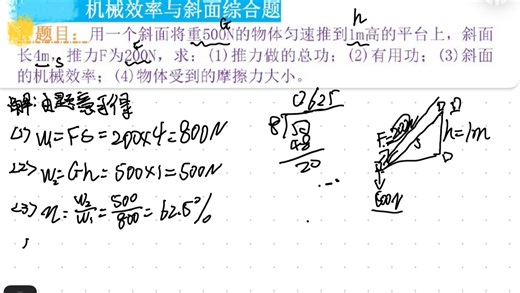 机械效率与斜面综合题
G
h
题目：用一个斜面将重500N的物体匀速推到1m高的平台上，斜面
F
长4m，推力F为200N，求：(1)推力做的总功；(2)有用功；(3)斜面
S
的机械效率；(4)物体受到的摩擦力大小。
解：由题意可得
(1) W=FS=200×4=800N
(2) W2=Gh=500×1=500N
(3) η=W2/W1=500/800=62.5%
0.625
8
50
48
20
...
F=200N
S
h=1m
500N